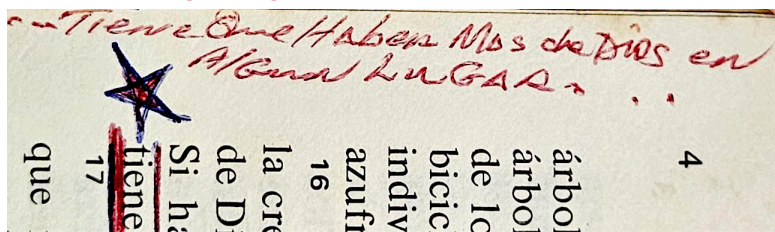 ...Tiene Que Haber Mas de Dios en
Algun LUGAR. . .
4
árbol
árbol
de lo
bicicl
indiv
azufr
16
la cre
de Di
Si ha
tiene
17
que